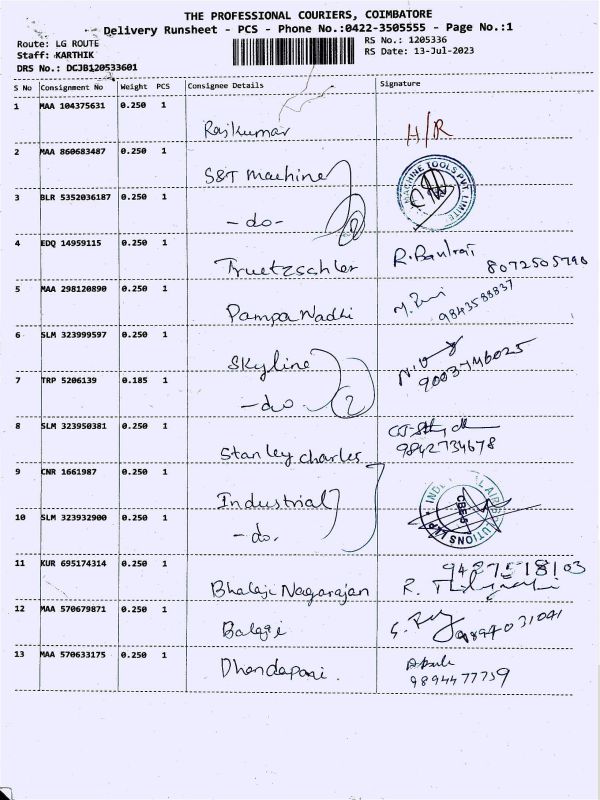 THE PROFESSIONAL COURIERS, COIMBATORE
Delivery Runsheet - PCS - Phone No.:0422-3505555 - Page No.:1
Route: LG ROUTE
RS No.: 1205336
Staff: KARTHIK
RS Date: 13-Jul-2023
DRS No.: DCJB120533601
S No Consignment No Weight PCS Consignee Details Signature
1 MAA 104375631 0.250 1 Rajkumar H/R
2 MAA 860683487 0.250 1 S&T Machine MACHINE TOOLS PVT. LIMITED
3 BLR 5352036187 0.250 1 -do- 2
4 EDQ 14959115 0.250 1 Truetzschler R. 8072505790
5 MAA 298120890 0.250 1 Pampa Nadhi 9843588837
6 SLM 323999597 0.250 1 Skyline 9003746025
7 TRP 5206139 0.185 1 -do 2
8 SLM 323950381 0.250 1 Stanley charles 9842734678
9 CNR 1661987 0.250 1 Industrial CBE-6
10 SLM 323932900 0.250 1 -do.
11 KUR 695174314 0.250 1 Bhalaji Nagarajan R.
12 MAA 570679871 0.250 1 Balaji 9894031041
13 MAA 570633175 0.250 1 Dhandapani. 9894477759